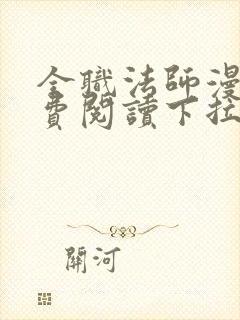 全職法師漫
費閱讀下拉
關河